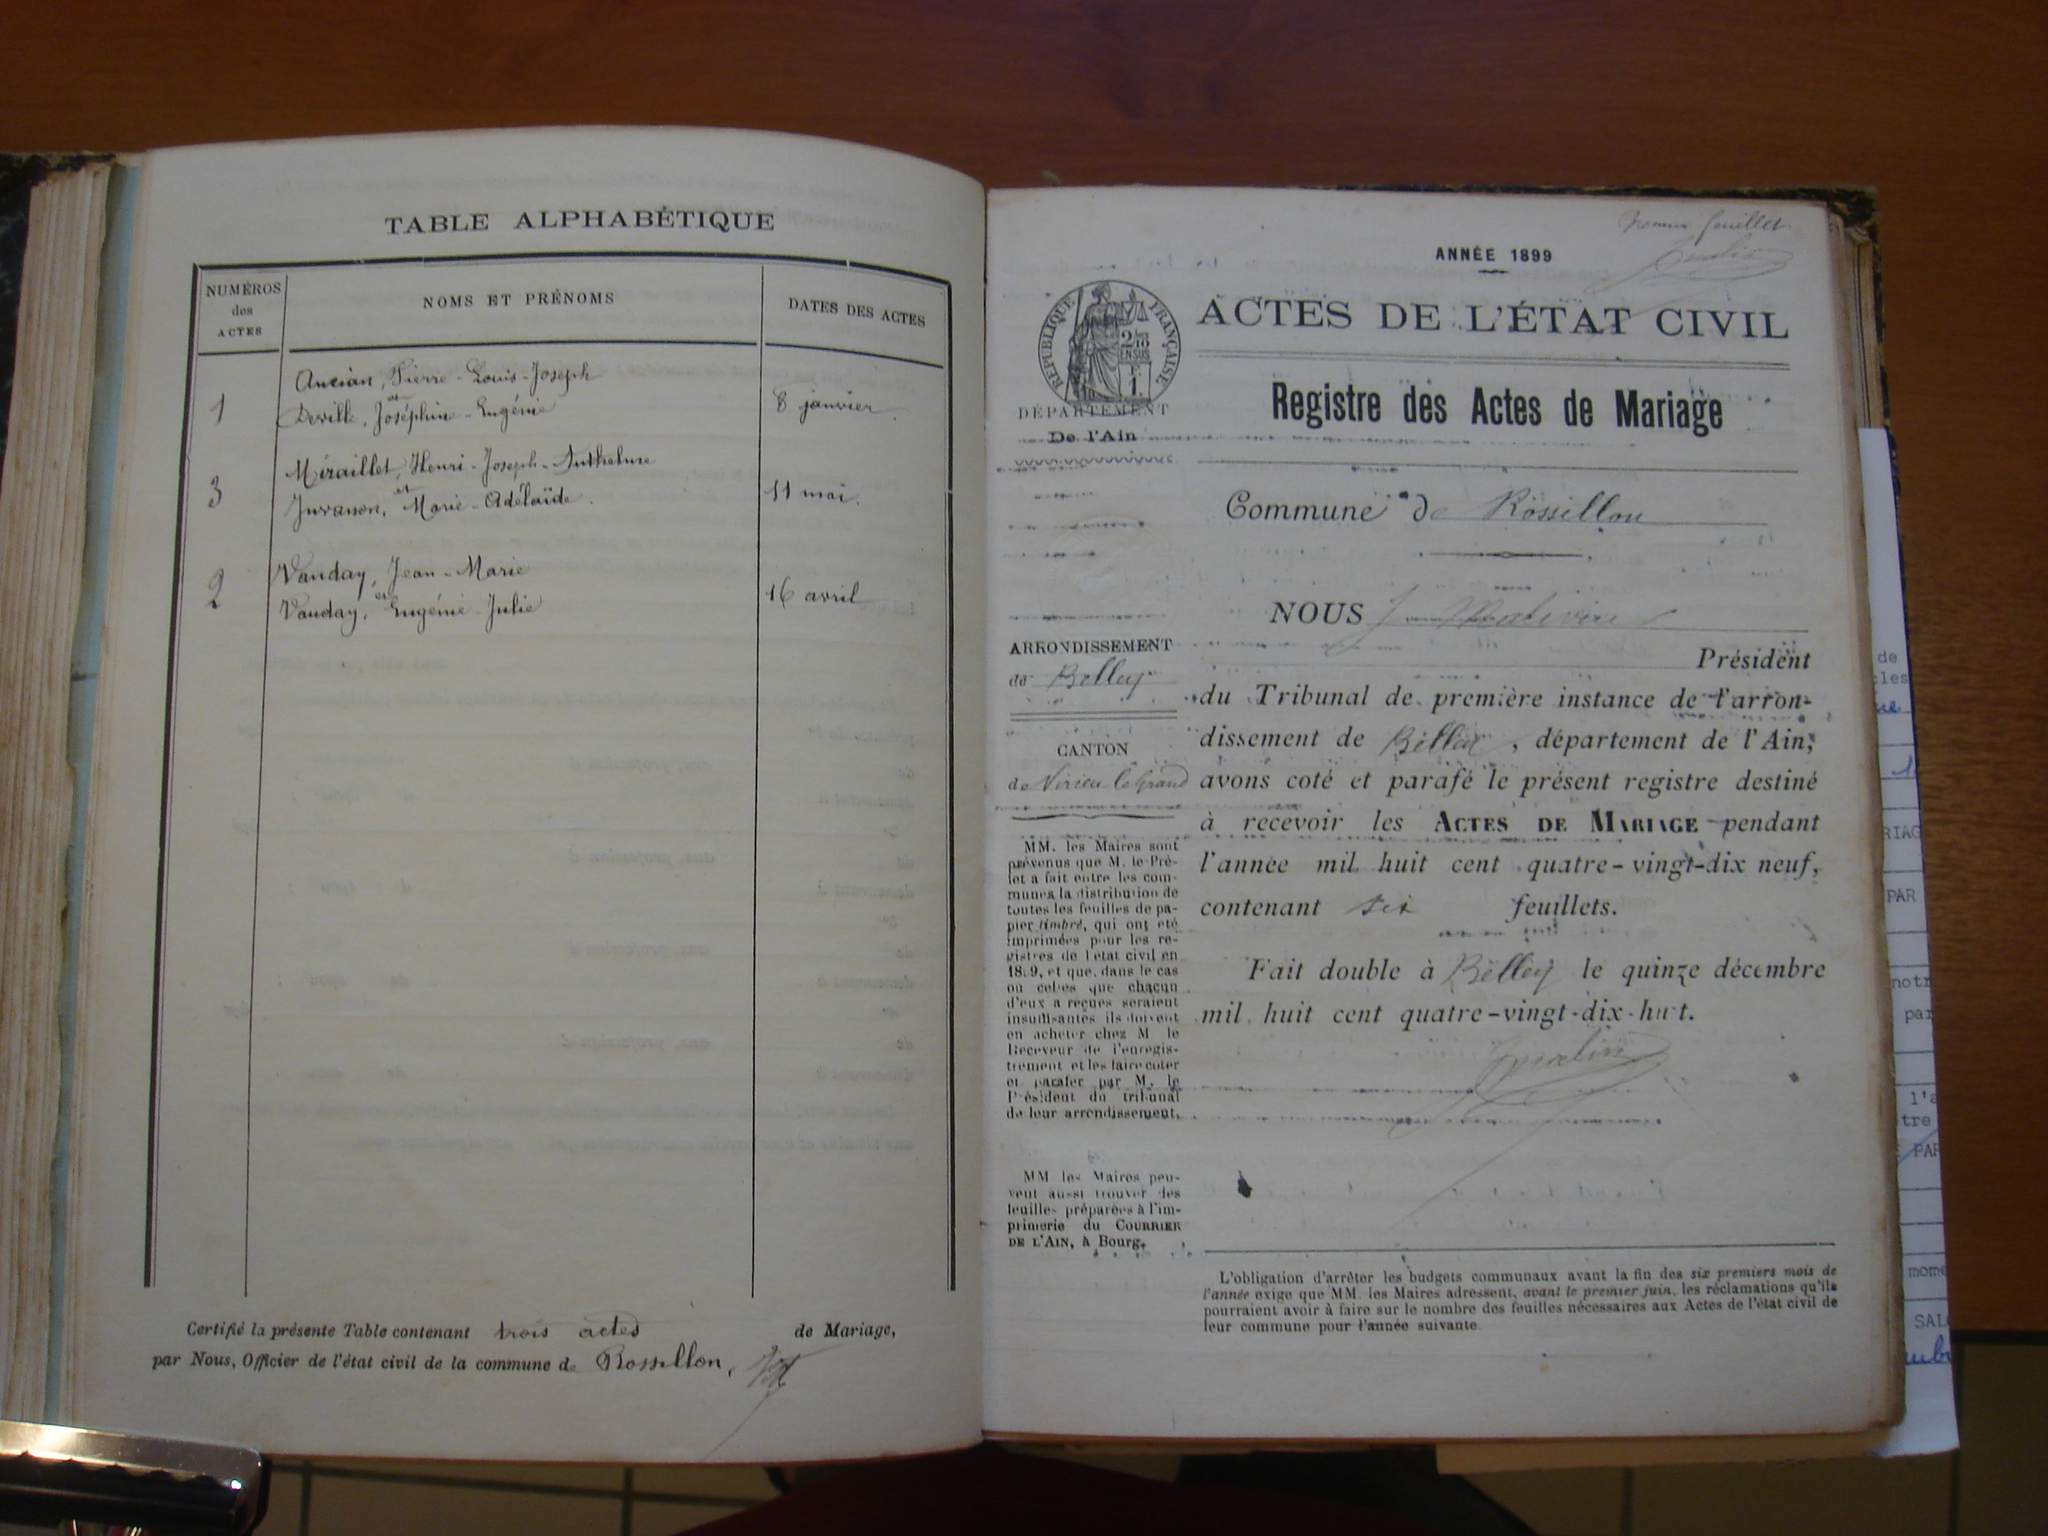 TABLE ALPHABÉTIQUE
NUMÉROS
des
ACTES
NOMS ET PRÉNOMS
DATES DES ACTES
1
Ancian, Pierre-Louis-Joseph
et
Deville, Joséphine-Eugénie
8 janvier
3
Miraillet, Henri-Joseph-Anthelme
et
Juvanon, Marie-Adélaïde.
11 mai.
2
Vanday, Jean-Marie
et
Vanday, Eugénie-Julie
16 avril
Certifié la présente Table contenant trois actes de Mariage,
par Nous, Officier de l'état civil de la commune de Rossillon,
feuillet
ANNÉE 1899
RÉPUBLIQUE FRANÇAISE
2/10
EN SUS
ACTES DE L'ÉTAT CIVIL
Registre des Actes de Mariage
DÉPARTEMENT
De l'Ain
Commune de Rossillon
NOUS
Président
du Tribunal de première instance de l'arron-
dissement de Belley, département de l'Ain,
avons coté et parafé le présent registre destiné
à recevoir les ACTES DE MARIAGE pendant
l'année mil huit cent quatre-vingt-dix neuf,
contenant six feuillets.
Fait double à Belley le quinze décembre
mil huit cent quatre-vingt-dix-huit.
ARRONDISSEMENT
de Belley
CANTON
de Virieu-le-Grand
MM. les Maires sont
prévenus que M. le Pré-
fet a fait entre les com-
munes la distribution de
toutes les feuilles de pa-
pier timbré, qui ont été
imprimées pour les re-
gistres de l'état civil en
1899, et que, dans le cas
où celles que chacun
d'eux a reçues seraient
insuffisantes ils doivent
en acheter chez M le
Receveur de l'enregis-
trement et les faire coter
et parafer par M. le
Président du tribunal
de leur arrondissement.
MM les Maires peu-
vent aussi trouver des
feuilles préparées à l'im-
primerie du COURRIER
DE L'AIN, à Bourg.
L'obligation d'arrêter les budgets communaux avant la fin des six premiers mois de
l'année exige que MM. les Maires adressent, avant le premier juin, les réclamations qu'ils
pourraient avoir à faire sur le nombre des feuilles nécessaires aux Actes de l'état civil de
leur commune pour l'année suivante